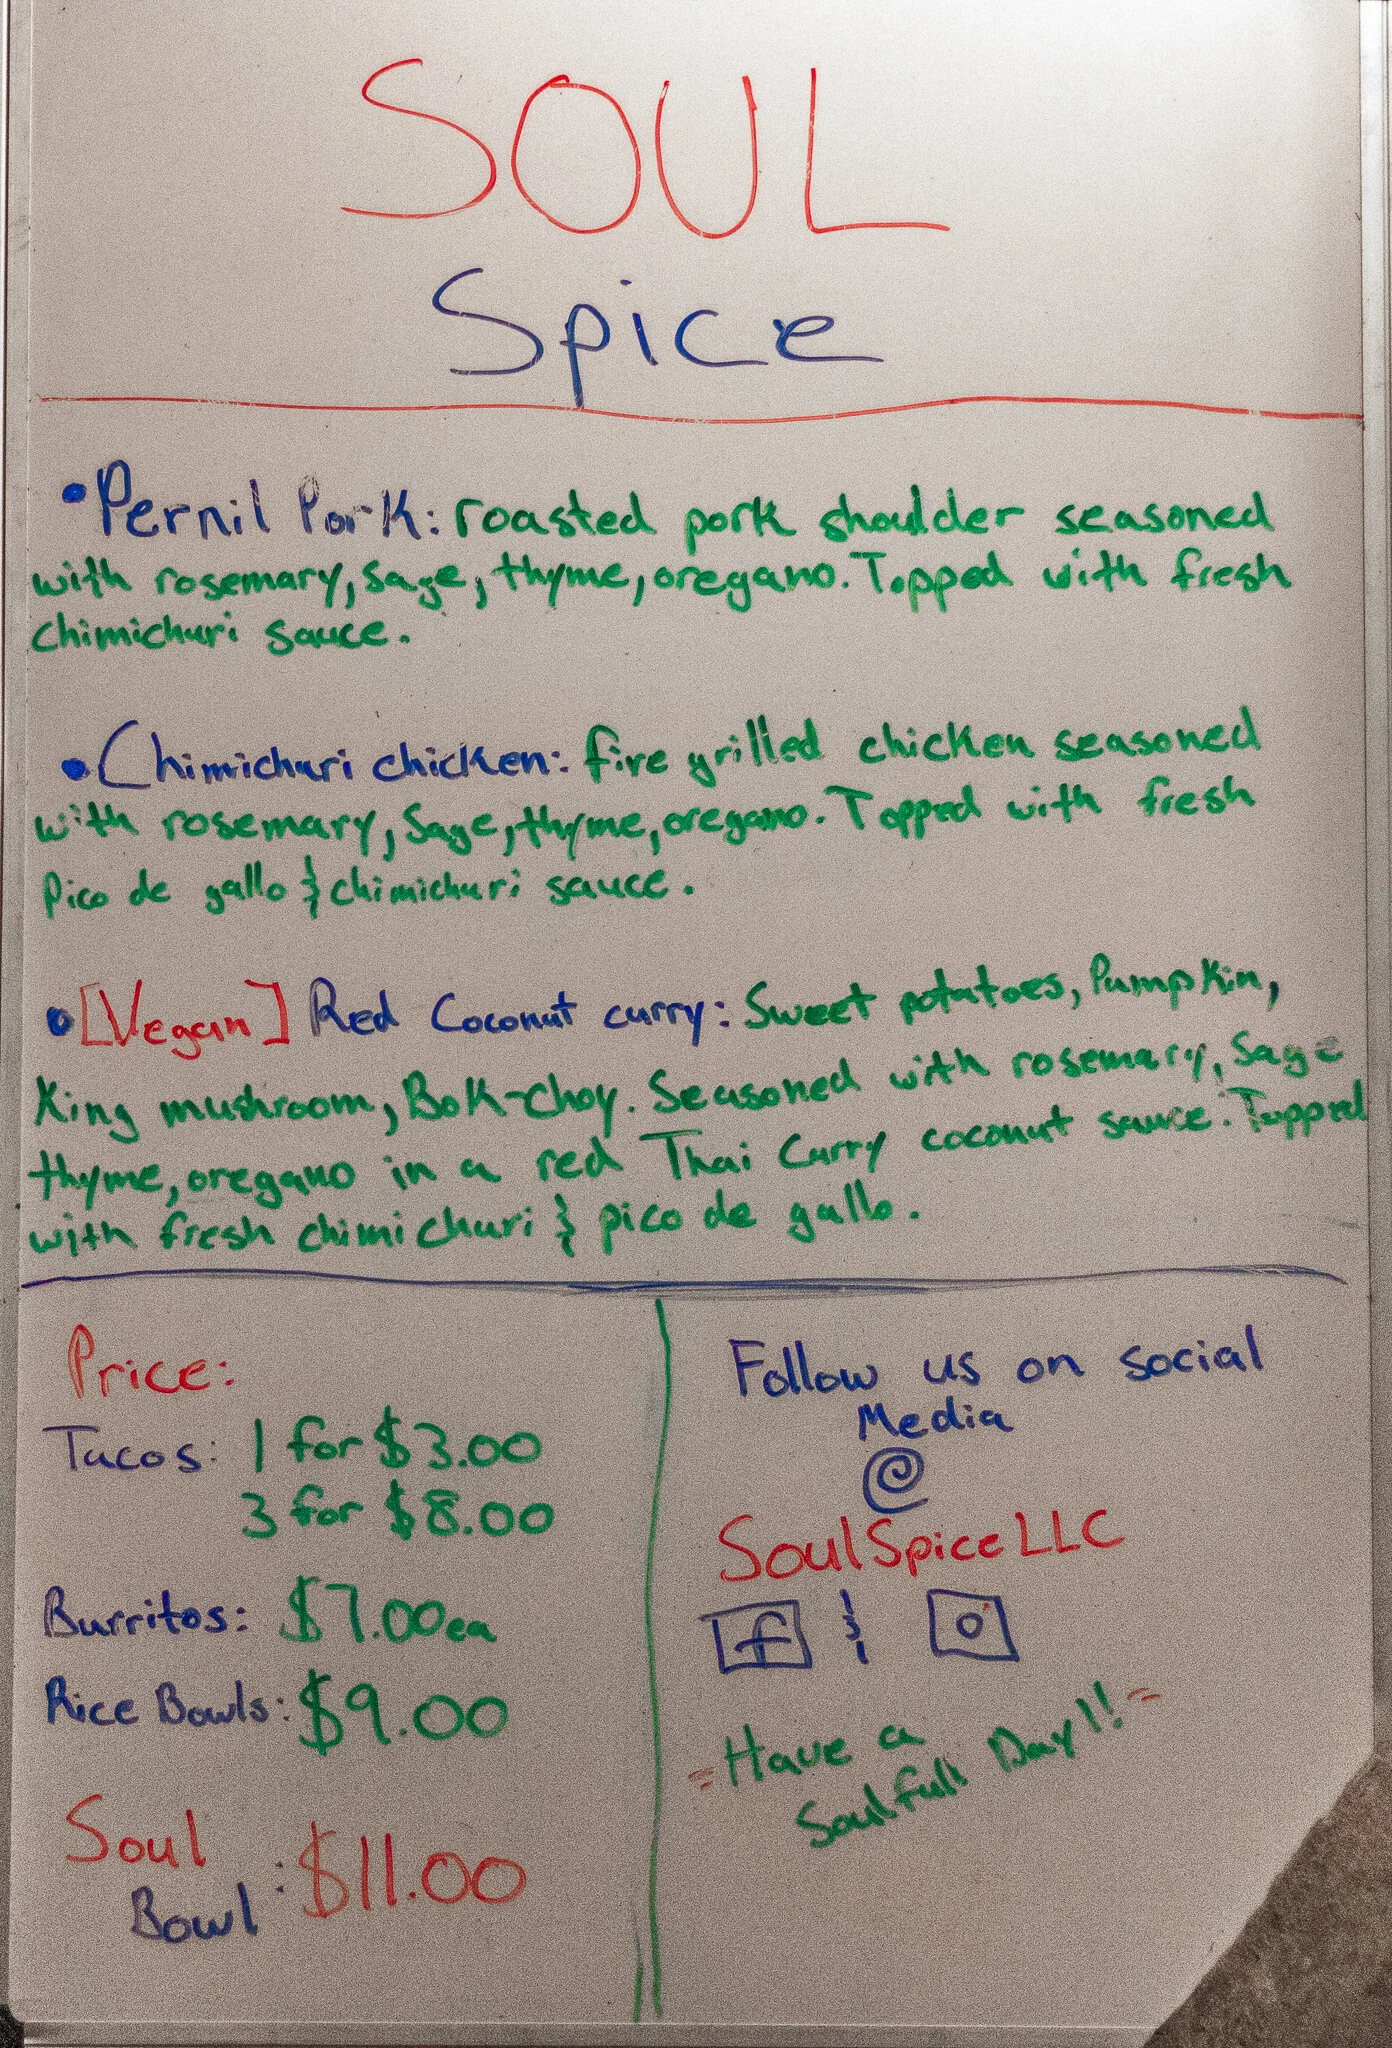 SOUL
Spice
•Pernil Pork: roasted pork shoulder seasoned
with rosemary, sage, thyme, oregano. Topped with fresh
chimichuri sauce.
•Chimichuri chicken: fire grilled chicken seasoned
with rosemary, sage, thyme, oregano. Topped with fresh
Pico de gallo & chimichuri sauce.
•[Vegan] Red Coconut curry: Sweet potatoes, Pumpkin,
King mushroom, Bok-choy. Seasoned with rosemary, sage
thyme, oregano in a red Thai Curry coconut sauce. Topped
with fresh chimichuri & pico de gallo.
Price:
Tacos: 1 for $3.00
3 for $8.00
Burritos: $7.00 ea
Rice Bowls: $9.00
Soul
Bowl: $11.00
Follow us on social
Media
@
SoulSpiceLLC
f &
Have a
Soulfull Day!!